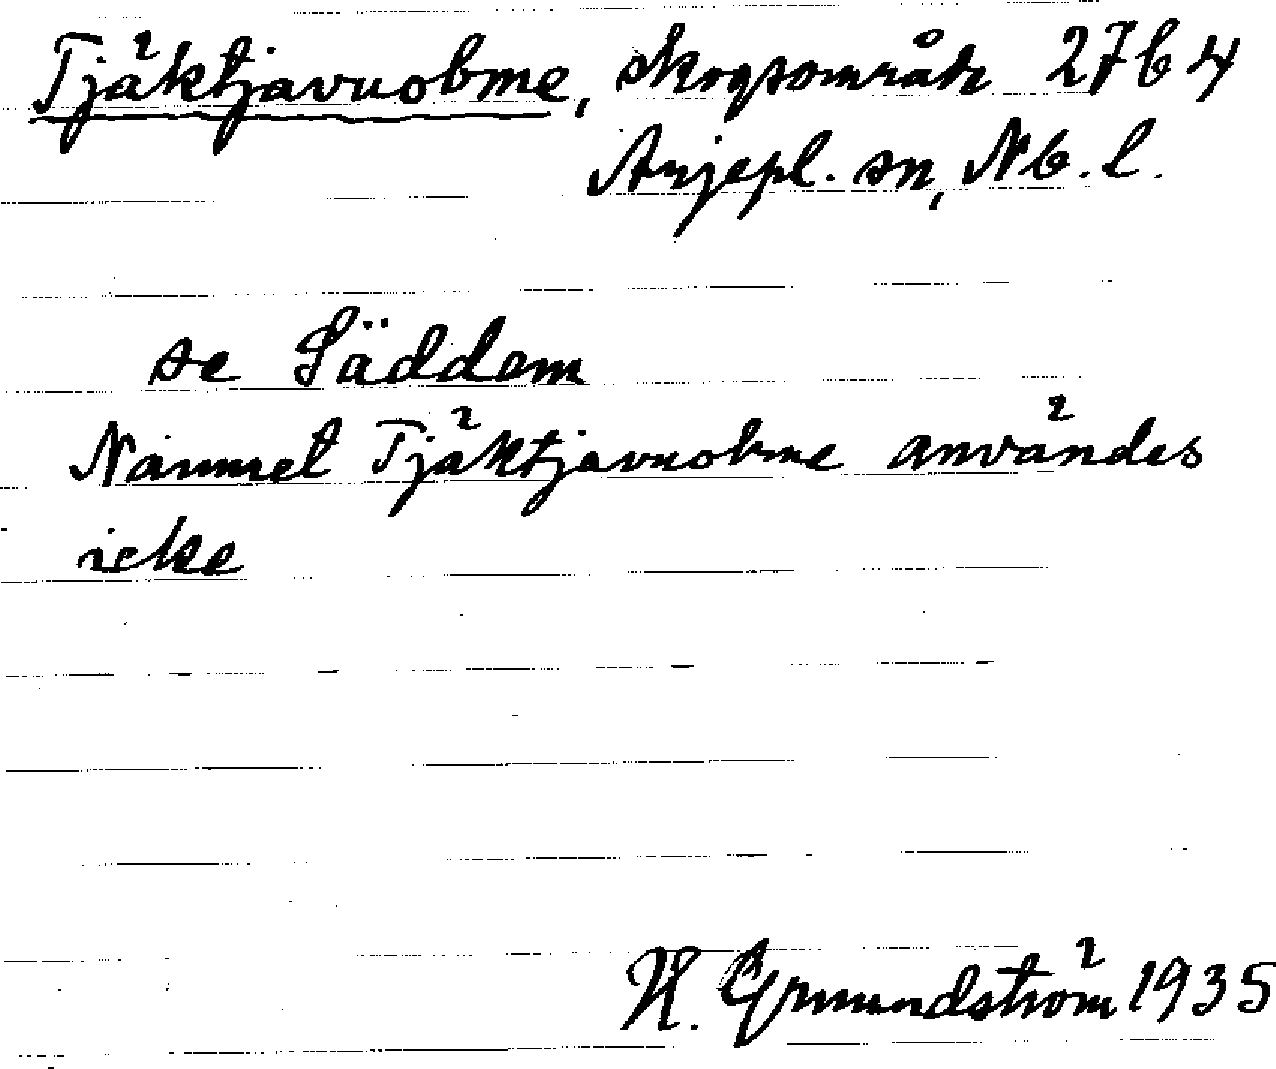 Tjäktjavuobme, skogsområde 27b4
Arjepl. sn, Nb. l.
se Säddem
Namnet Tjäktjavuobme användes
icke
H. Grundström 1935